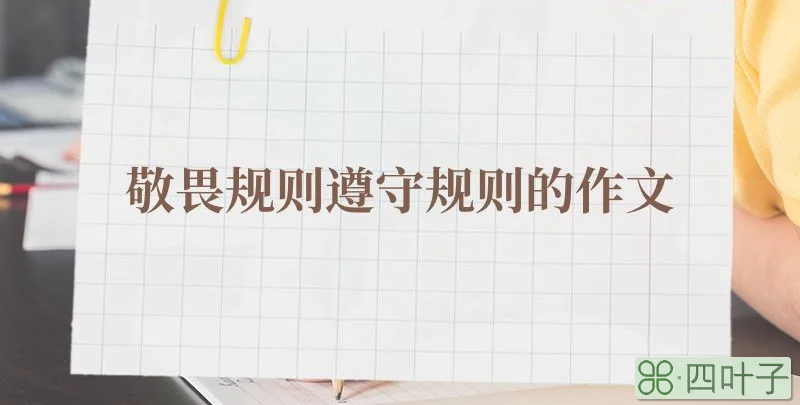 敬畏规则遵守规则的作文
四叶子